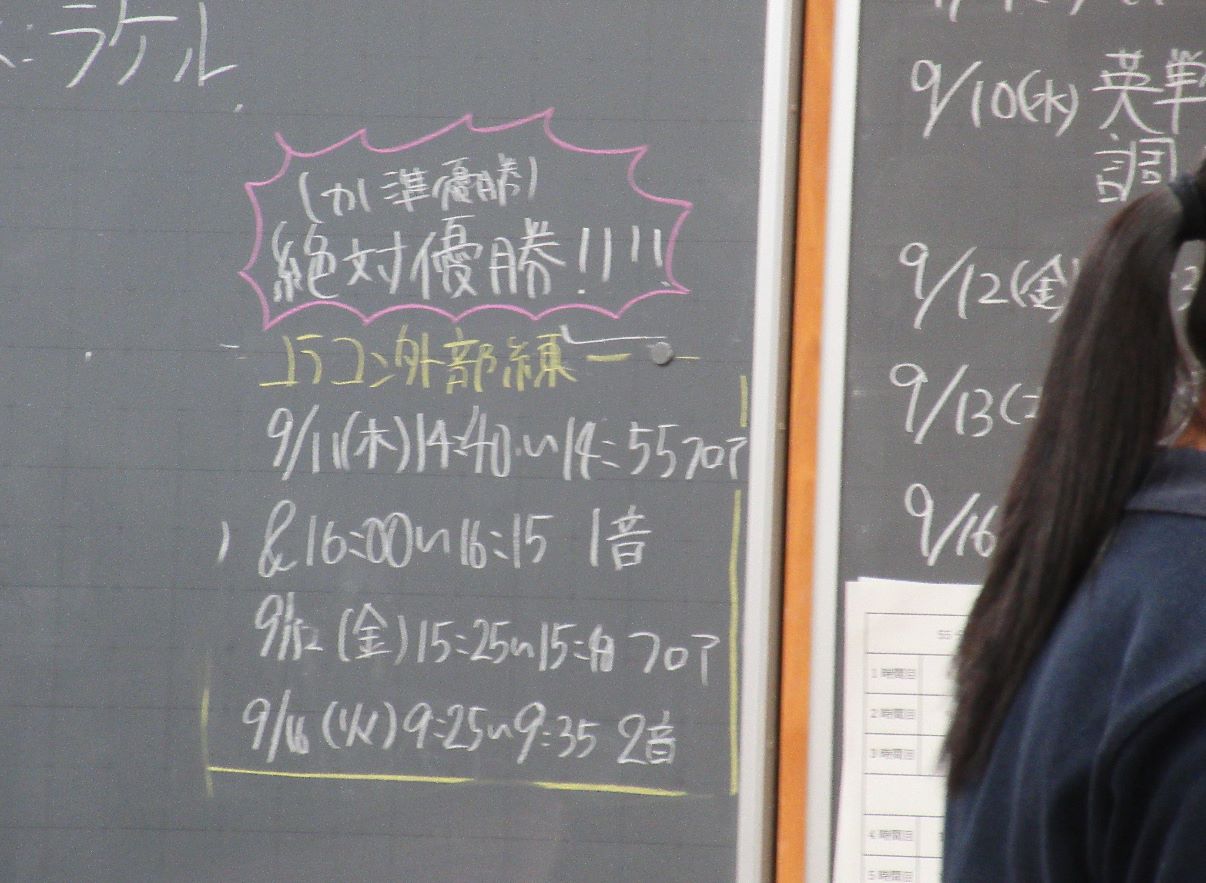 ラケル
(か準優勝)
絶対優勝!!!!
コラコン外部練
9/11(木)14:40〜14:55フロア
& 16:00〜16:15 1音
9/12(金)15:25〜15: フロア
9/16(火)9:25〜9:35 2音
9/10(水) 英単
調
9/12(金)
9/13(土
9/16
1時間目
2時間目
3時間目
4時間目
5時間目